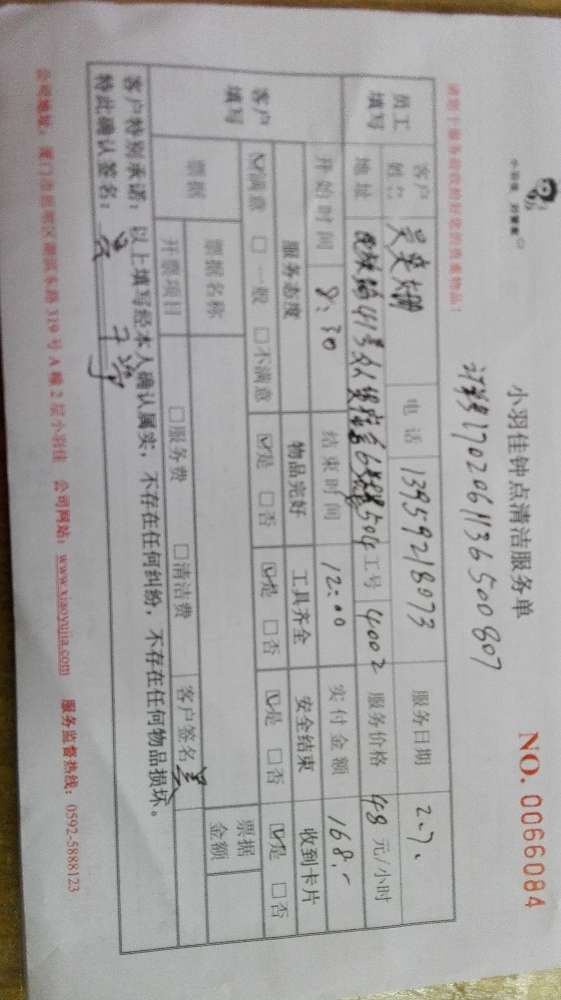 小羽佳 刘管家
小羽佳钟点清洁服务单
NO. 0066084
170206113650080
请您于服务前收拾好您的贵重物品！
员工填写
客户姓名 电话 13959218073 服务日期 2.7.
地址 41号 504 工号 4002 服务价格 48 元/小时
客户填写
开始时间 8:30 结束时间 12:00 实付金额 168.-
服务态度 物品完好 工具齐全 安全结束 收到卡片
☑满意 □一般 □不满意 ☑是 □否 ☑是 □否 ☑是 □否 ☑是 □否
票据 票据名称 票据金额
开票项目 □服务费 □清洁费 客户签名 吴
客户特别承诺：以上填写经本人确认属实，不存在任何纠纷，不存在任何物品损坏。
特此确认签名：吴
公司地址：厦门市思明区湖滨东路319号A幢2层小羽佳 公司网站：www.xiaoyujia.com 服务监督热线：0592-5888123